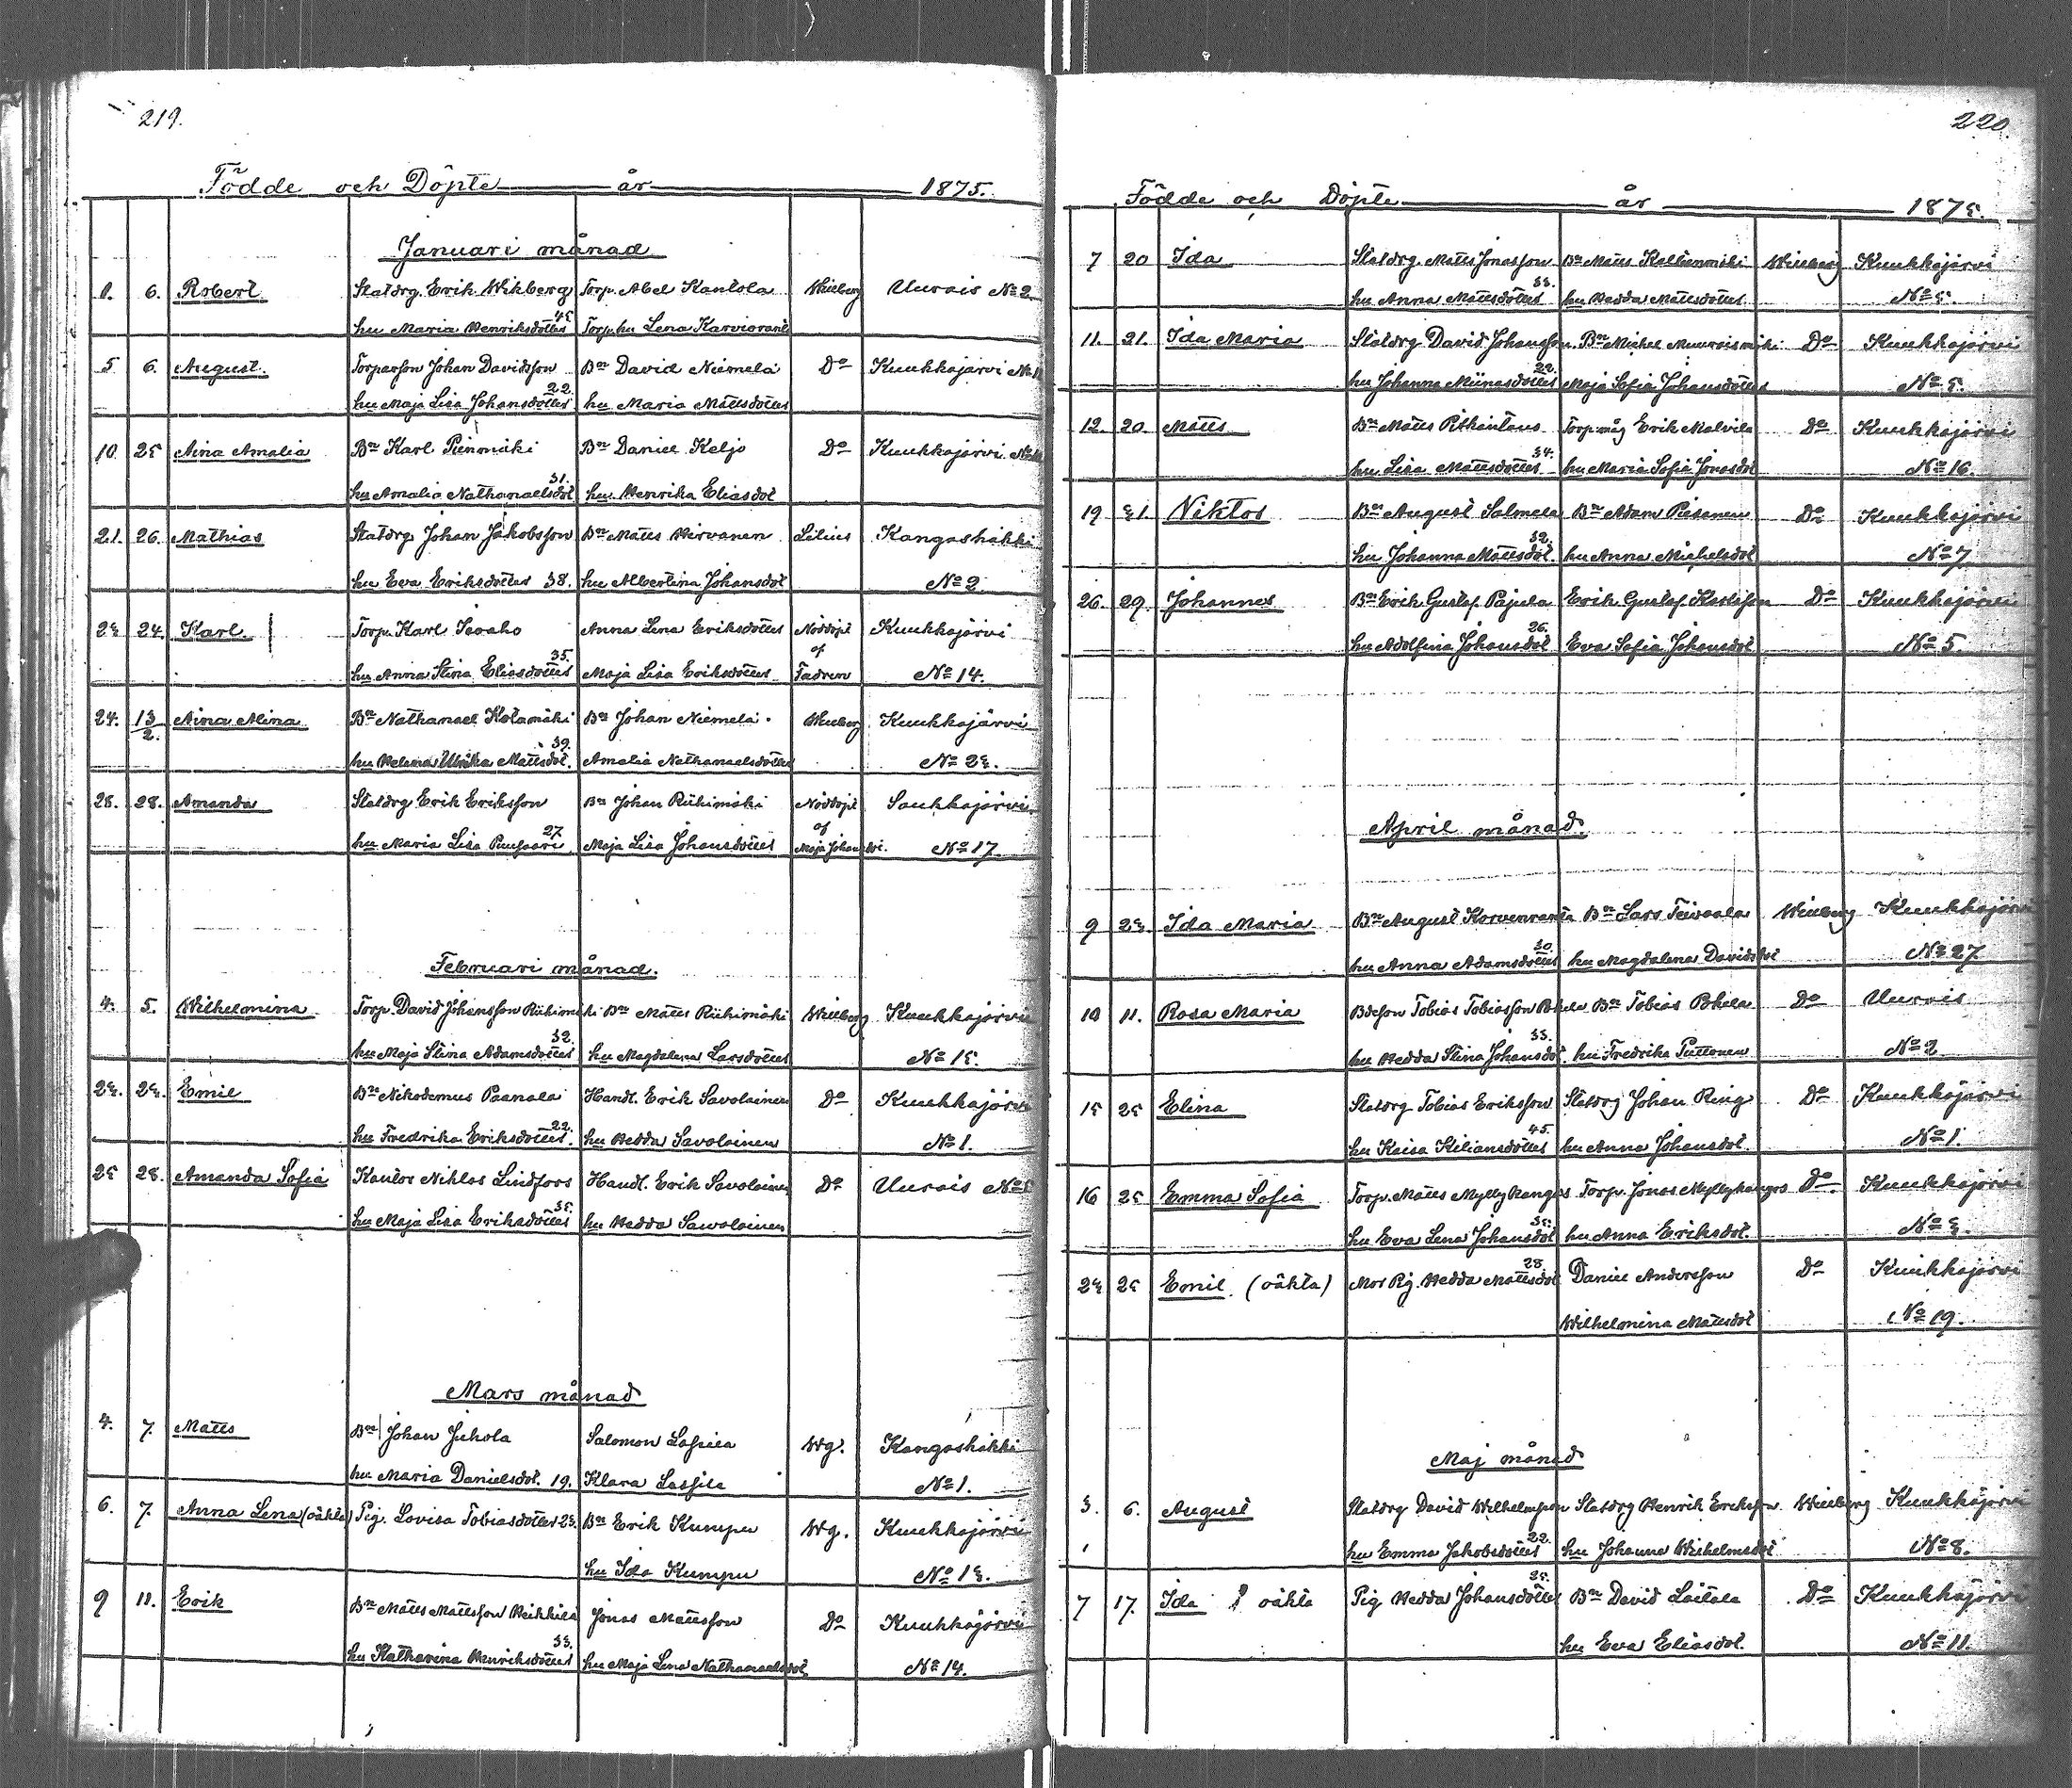 219.
Födde och Döpte år 1875.
Januari månad
1. 6. Robert Statdrg. Erik Wikberg Torp. Abel Kantola Wieberg Uurais No 2
hu Maria Henriksdotter 45 Torp. hu Lena Karvioranta
5 6. August. Torparson Johan Davidsson Bn David Niemelä Do Kuukkajärvi
hu Maja Lisa Johansdotter 22 hu Maria Mattsdotter
10 25 Aina Amalia Bn Karl Pienmäki Bn Daniel Keljo Do Kuukkajärvi
hu Amalia Nathanaelsdot 31. hu Henrika Eliasdot
21. 26. Mathias Statdrg Johan Jakobsson Bn Matts Hirvonen Lilius Kangashäkki
hu Eva Eriksdotter 38. hu Albertina Johansdot No 2
23 24 Karl. Torp. Karl Isoaho Anna Lena Eriksdotter Nöddöpt Kuukkajärvi
af
hu Anna Stina Eliasdotter 35. Maja Lisa Eriksdotter Fadren No 14.
24. 13/2. Aina Alina Bn Nathanael Kotamäki Bn Johan Niemelä Wieberg Kuukkajärvi
hu Helena Ulrika Mattsdot. 39. Amalia Nathanaelsdotter No 23.
28. 28. Amanda Statdrg Erik Eriksson Bn Johan Riihimäki Nöddöpt Saukkajärvi
af
hu Maria Lisa 27 Maja Lisa Johansdotter Maja Johansdr. No 17.
Februari månad.
4. 5. Wilhelmina Torp. David Johansson Riihimäki Bn Matts Riihimäki Wieberg Kuukkajärvi
hu Maja Stina Adamsdotter 32. hu Magdalena Larsdotter No 15.
23. 23. Emil Bn Nikodemus Paanala Handl. Erik Savolainen Do Kuukkajärvi
hu Fredrika Eriksdotter. 22. hu Hedda Savolainen No 1.
25 28. Amanda Sofia Kantor Niklas Lindfors Handl. Erik Savolainen Do Uurais
hu Maja Lisa Eriksdotter 35. hu Hedda Sawolainen
Mars månad
4. 7. Matts Bn Johan Juhola Salomon Lassila Wg. Kangashäkki
hu Maria Danielsdot. 19. Klara Lassila No 1.
6. 7. Anna Lena (oäkta) Pig. Lovisa Tobiasdotter 23. Bn Erik Kumpu Wg. Kuukkajärvi
hu Ida Kumpu No 13.
9 11. Erik Bn Matts Mattsson Heikkilä Jonas Mattsson Do Kuukkajärvi
hu Katharina Henriksdotter 33. hu Maja Lena Nathanaelsdot No 14.
220.
Födde och Döpte år 1875.
7 20 Ida Statdrg. Matts Jonasson Bn Matts Kallionmäki Wieberg Kuukkajärvi
hu Anna Mattsdotter 33. hu Hedda Mattsdotter No 5.
11. 21. Ida Maria Statdrg David Johansson Bn Michel Muuraismäki Do Kuukkajärvi
hu Johanna Miinasdotter 22. Maja Sofia Johansdotter No 5.
12. 20. Matts Bn Matts Pitkäntaus Torp. måg Erik Malvila Do Kuukkajärvi
hu Lisa Mattsdotter 34. hu Maria Sofia Jonasdot No 16.
19 21. Niktor Bn August Salmela Bn Adam Piesanen Do Kuukkajärvi
hu Johanna Mattsdot. 32. hu Anna Michelsdot No 7
26. 29. Johannes Bn Erik Gustaf Pajula Erik Gustaf Karlsson Do Kuukkajärvi
hu Adolfina Johansdot 26. Eva Sofia Johansdot No 5.
April månad.
9 23 Ida Maria Bn August Korvenranta Bn Lars Teivaala Wieberg Kuukkajärvi
hu Anna Adamsdotter 30. hu Magdalena Davidsdr No 27
10 11. Rosa Maria Bdeson Tobias Tobiasson Pohela Bn Tobias Pohela Do Uurais
hu Hedda Stina Johansdot 33. hu Fredrika Puttonen No 2
15 25 Elina Statdrg Tobias Eriksson Statdrg Johan Ring Do Kuukkajärvi
hu Kaisa Kiliansdotter 45. hu Anna Johansdot. No 1.
16 25 Emma Sofia Torp. Matts Myllykangas Torp. Jonas Myllykangas Do. Kuukkajärvi
hu Eva Lena Johansdot 35. hu Anna Eriksdot. No 3.
23 25 Emil. (oäkta) Mor Pig. Hedda Mattsdot 28. Daniel Andersson Do Kuukkajärvi
Wilhelmina Mattsdot No 19.
Maj månad
3. 6. August Statdrg David Wilhelmsson Statdrg Henrik Eriksson Wieberg Kuukkajärvi
hu Emma Jakobsdotter 22. hu Johanna Wilhelmsdot No 8.
7 17. Ida oäkta Pig Hedda Johansdotter 25. Bn David Laitala Do Kuukkajärvi
hu Eva Eliasdot. No 11.